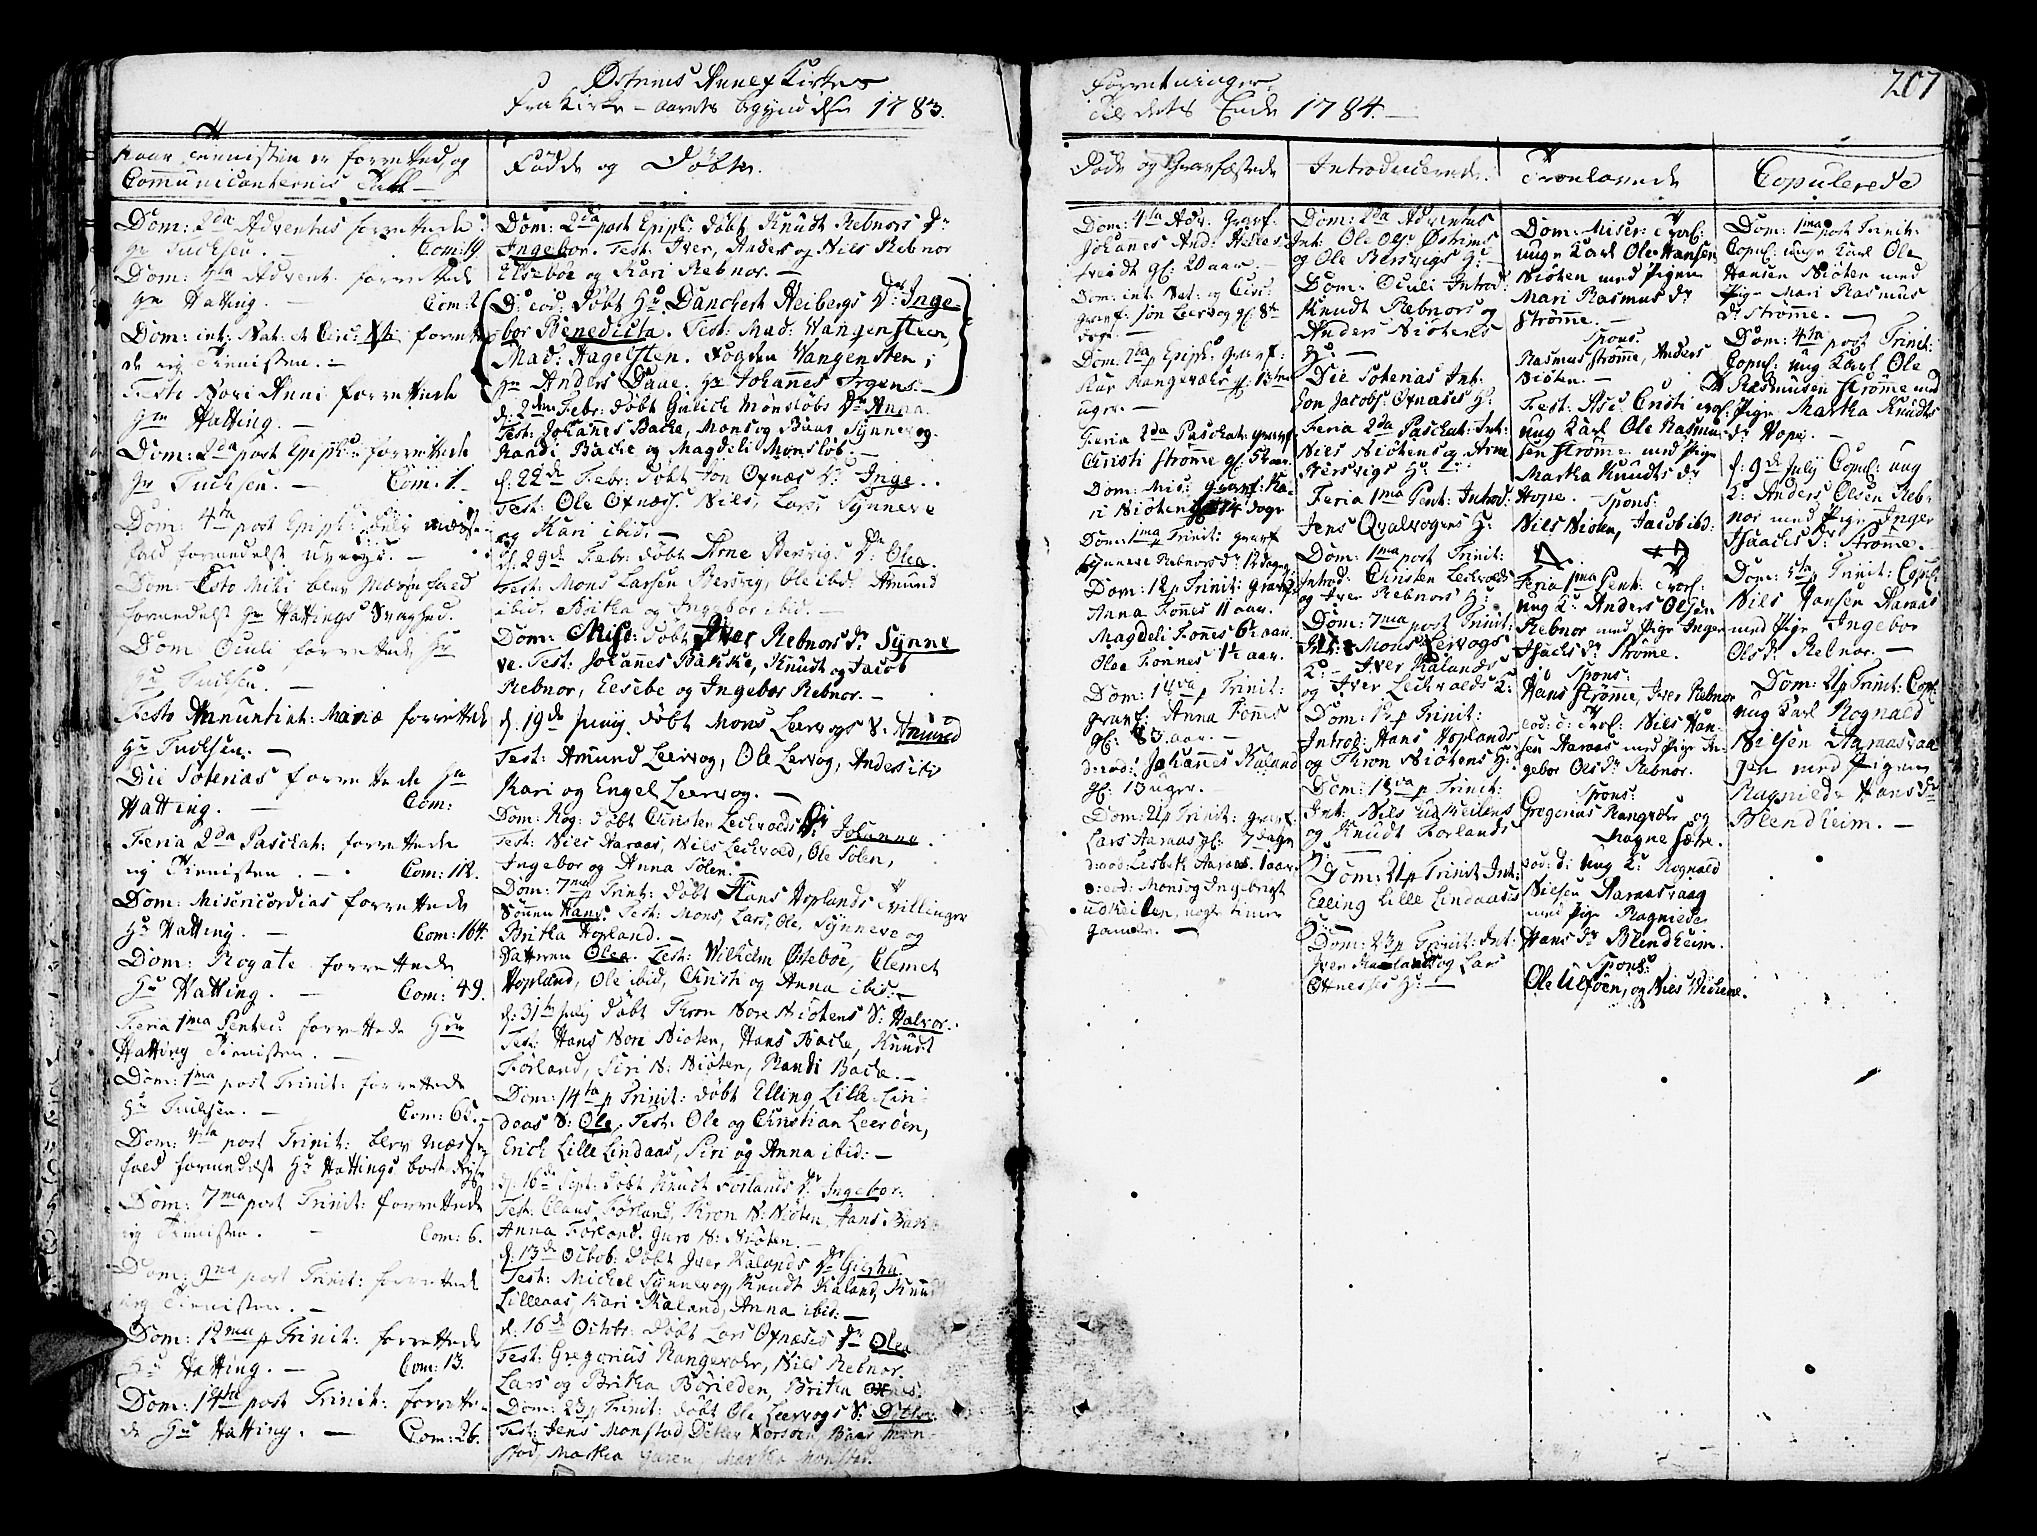 Østrems Annex Kirkes
Fra Kirke-aarets begyndelse 1783.
Forretninger
til dets Ende 1784.
207
Naar Tienisten er forretted, og
Communicanternis Tall
Dom: 2dæ Adventus forrettede
Hr Tuchsen. Com: 19
Dom: 4ta Advent: forrettede
Hr Hatting. Com: 2
Dom: int: Nat: et Circ: Xsti forrette
de ieg Tienisten.
Festo Novi Anni forrettede
Hr Hatting.
Dom: 2da post Epiph: forrettede
Hr Tuchsen. Com: 1
Dom: 4ta post Epiph: blev Messe
fald formedelst uveyr.
Dom: Esto Mihi blev Messefald
formedelst Hr Hattings Svaghed.
Dom Oculi forrettede
Hr Tuchsen.
Festo Annuntiat: Mariæ forrettede
Hr Tuchsen.
Die Soterias forrettede Hr
Hatting. Com:
Feria 2da Paschat: forrettede
ieg Tienisten. Com: 112.
Dom: Misericordias forrettede
Hr Hatting. Com: 164.
Dom: Rogate forrettede
Hr Hatting. Com: 49.
Feria 1ma Pentec: forrettede Hr
Hatting Tienisten.
Dom: 1ma post Trinit: forrettede
Hr Tuchsen. Com: 65.
Dom: 4ta post Trinit: blev Messe
fald formedelst Hr Hattings bort Reyse
Dom: 7ma post Trinit: forrettede
ieg Tienisten. Com: 6.
Dom: 9na post Trinit: forrettede
ieg Tienisten.
Dom: 12ma p Trinit: forrettede
Hr Hatting. Com: 13.
Dom: 14ta post Trinit: forrette-
de Hr Hatting. Com: 26.
Fødde og Døbte.
Dom: 2da post Epiph: døbt Knudt Rebnors Dr
Ingebor. Test: Iver, Anders og Nils Rebnor
Elsebe og Kari Rebnor.
D: eod: døbt Hr Danchert Heibergs Dr Inge-
bor Benedicta. Test: Mad: Wangensteen,
Mad: Hagelsten. Fogden Wangensten,
Hr Anders Daae. Hr Johannes Irgens
d: 2den Febr: døbt Gulich Monsløbs Dr Anna.
Test: Johannes Bache, Mons og Baar Synnevog.
Randi Bache og Magdeli Monsløb.
d: 22de Febr: døbt Jon Oxnæs Dr Inge.
Test: Ole Oxnæs. Nils, Lars, Synneve
og Kari ibid:
d: 29de Febr: døbt Arne Bersvig Dr Olea.
Test: Mons Larsen Bersvig, Ole ibid: Amund
ibid: Britha og Ingebor ibid:
Dom: Mise: døbt Iver Rebnors Dr Synne
ve. Test: Johannes Bakke, Knudt og Jacob
Rebnor, Elsebe og Ingebor Rebnor.
d. 19de Junij døbt Mons Leervogs S: Amund
Test: Amund Leervog, Ole Lervog, Anders ibid
Kari og Engel Leervog.
Dom: Rog: døbt Christen Lechvolds Dr Johanna.
Test: Niels Aaraas, Niels Lechvold, Ole Solen,
Ingebor og Anna Solen.
Dom: 7ma p Trinit: døbt Hans Hoplands Tvillinger
Sønnen Hans. Test: Mons, Lars, Ole, Synneve og
Britha Hopland.
Datteren Olea. Test: Wilhelm Østeboe, Clemet
Hopland, Ole ibid, Christi og Anna ibid:
d: 31te Julij døbt Thron Nore Niøtens S: Halvor.
Test: Hans Nore Niøten, Hans Bache, Knudt
Førland, Siri N: Niøten, Randi Bache.
Dom: 14ta p Trinit: døbt Elling Lille Lin-
daas S: Ole. Test: Ole og Christian Leerøen,
Erich Lille Lindaas, Siri og Anna ibid:
d: 16de Sept: døbt Knudt Førlands Dr Ingebor.
Test: Claus Førland, Thron N: Niøten, Hans Bache
Anna Førland. Guro N: Niøten.
d: 13de Octob: døbt Iver Kalands Dr Giertru.
Test: Michel Synnevog, Knudt Kaland, Knudt
Lilleaas Kari Kaland, Anna ibid:
d: 16de Octbr: døbt Lars Oxnæses Dr Olea
Test: Gregorius Rangevohr, Nils Rebnor.
Lars og Britha Børilden, Britha Oxnes.
Dom: 23 p Trinit: døbt Ole Leervogs S: Ditlev
Test: Jens Monstad Detlev Korsøen Baar Mon
stad, Martha Garen, Martha Monstad.
Døde og Gravfæstede
Dom: 4ta Adv. Gravf.
Johanes And: Hilles
tveidt gl: 20 aar.
Dom: int: Nat: og Circ:
gravf: Jon Leervog gl: 8te
dage.
Dom: 2da p Epiph: Gravf:
Rangevohr gl: 13ten
uger.
Feria 2da Paschat: gravf:
Christi Strømme gl: 52 aar.
Dom: Mis: gravf: Ka-
ri Niøten gl: 14 dage
Dom: 1ma p Trinit: gravf
Synneve Rebnors Dr 12 dage
Dom: 12 p Trinit: Gravf:
Anna Fonnes 11 aar.
Magdeli Fonnes 6½ aar.
Olae Fonnes 1½ aar.
Dom: 18va p Trinit:
gravf: Anna Fonnes
gl: 83 aar.
d: eod: Johannes Kaland
gl: 13 uger.
Dom: 21 p Trinit: gravf:
Lars Aaraas gl: 7 dage
d: eod: Lisbeth Aaraas. 1 aar.
d: eod: Mons og Ingebrigt
udkeilen, nogle timer
gamle.
Introducerede.
Dom: 2da Adventus
Int: Ole Ols: Østrems
og Ole Bersvigs H:
Dom: Oculi Introd:
Knudt Rebnors og
Anders Niøtens
H:
Die Soterias Int.
Jon Jacobs: Oxnæses H:
Feria 2da Paschat: Int:
Niels Niøtens og Arne
Bersvigs H:
Feria 1ma Pent: Introd:
Jens Qvalvogens H:
Dom: 1ma post Trinit:
Introd. Christen Lechvolds
og Iver Rebnors H:
Dom: 7ma post Trinit:
Int: Mons Lervogs
K: Iver Kalands
og Iver Lechvolds K:
Dom: 12 p Trinit:
Introd: Hans Hoplands
og Thron Niøtens H:
Dom: 18va p Trinit:
Int: Nils udkeilens
og Knudt Forlands
H:
Dom: 21 p Trinit Int:
Elling Lille Lindaases
H:
Dom: 23 p Trinit: Int.
Iver Kalands og Lars
Oxnesses H:
Troelovede
Dom: Miser: Trol:
unge Karl Ole Hansen
Niøten med Pigen
Mari Rasmus Dr
Strømme.
Spons:
Rasmus Strømme, Anders
Niøten.
Fest: Asc: Cristi trol:
ung Karl Ole Rasmus
sen Strømme med Pige
Martha Knudts Dr
Hope. Spons:
Nils Niøten, Jacob ibd:
Feria 1ma Pent: Trol:
ung K: Anders Olsen
Rebnor med Pige Inger
Isachs Dr Strømme.
Spons:
Hans Strømme, Iver Rebnor
eod: d: Trol: Niels Han-
sen Aaraas med Pige In-
gebor Ols Dr Rebnor.
Spons:
Gregorius Rangvohr og
Magne Sætre.
eod: d: Ung K: Rognald
Nielsen Aaraasvaag
med Pige Ragnilde
Hans Dr Blendheim.
Spons:
Ole Ulføen, og Nies Wichene.
Copulerede
Dom: 1ma post Trinit:
Copul: unge Karl Ole
Hansen Niøten med
Pige Mari Rasmus
Dr Strømme.
Dom: 4ta post Trinit:
Copul: ung Karl Ole
Rasmusen Strømme med
Pige Martha Knudts
Dr Hope.
d: 9de July Copul: ung
K: Anders Olsen Reb-
nor med Pige Inger
Isaachs Dr Strømme.
Dom: 5ta p Trinit: Copul:
Nils Hansen Aaraas
med Pige Ingebor
Ols Dr Rebnor.
Dom: 21 p Trinit: Copl:
ung Karl Rognald
Nielsen Aaraasvaa
gen med Pigen
Ragnilde Hans Dr
Blendheim.